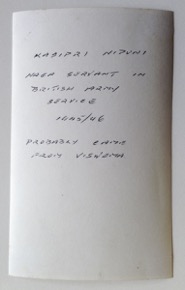 KASIPRI NIZUMI
NAGA SERVANT IN
BRITISH ARMY
SERVICE
1945/46
PROBABLY CAME
FROM VISWEMA